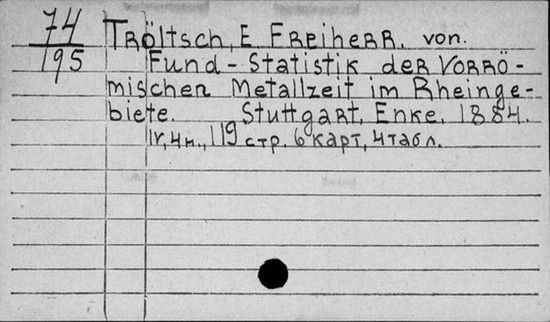 74
195
Tröltsch, E Freiherr. von.
Fund-Statistik der Vorrö-
mischen Metallzeit im Rheinge-
biete. Stuttgart, Enke, 1884.
IV, 4 н., 119 стр. 6 карт, 4 табл.